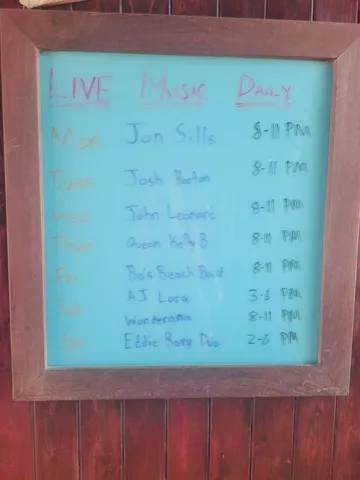 LIVE MUSIC DAILY
Mon Jon Sills 8-11 PM
Tues Josh 8-11 PM
Wed John Leonard 8-11 PM
Thur Queen Kelly B 8-11 PM
Fri Beach Band 8-11 PM
Sat AJ Lora 3-6 PM
8-11 PM
Sun Eddie Duo 2-6 PM